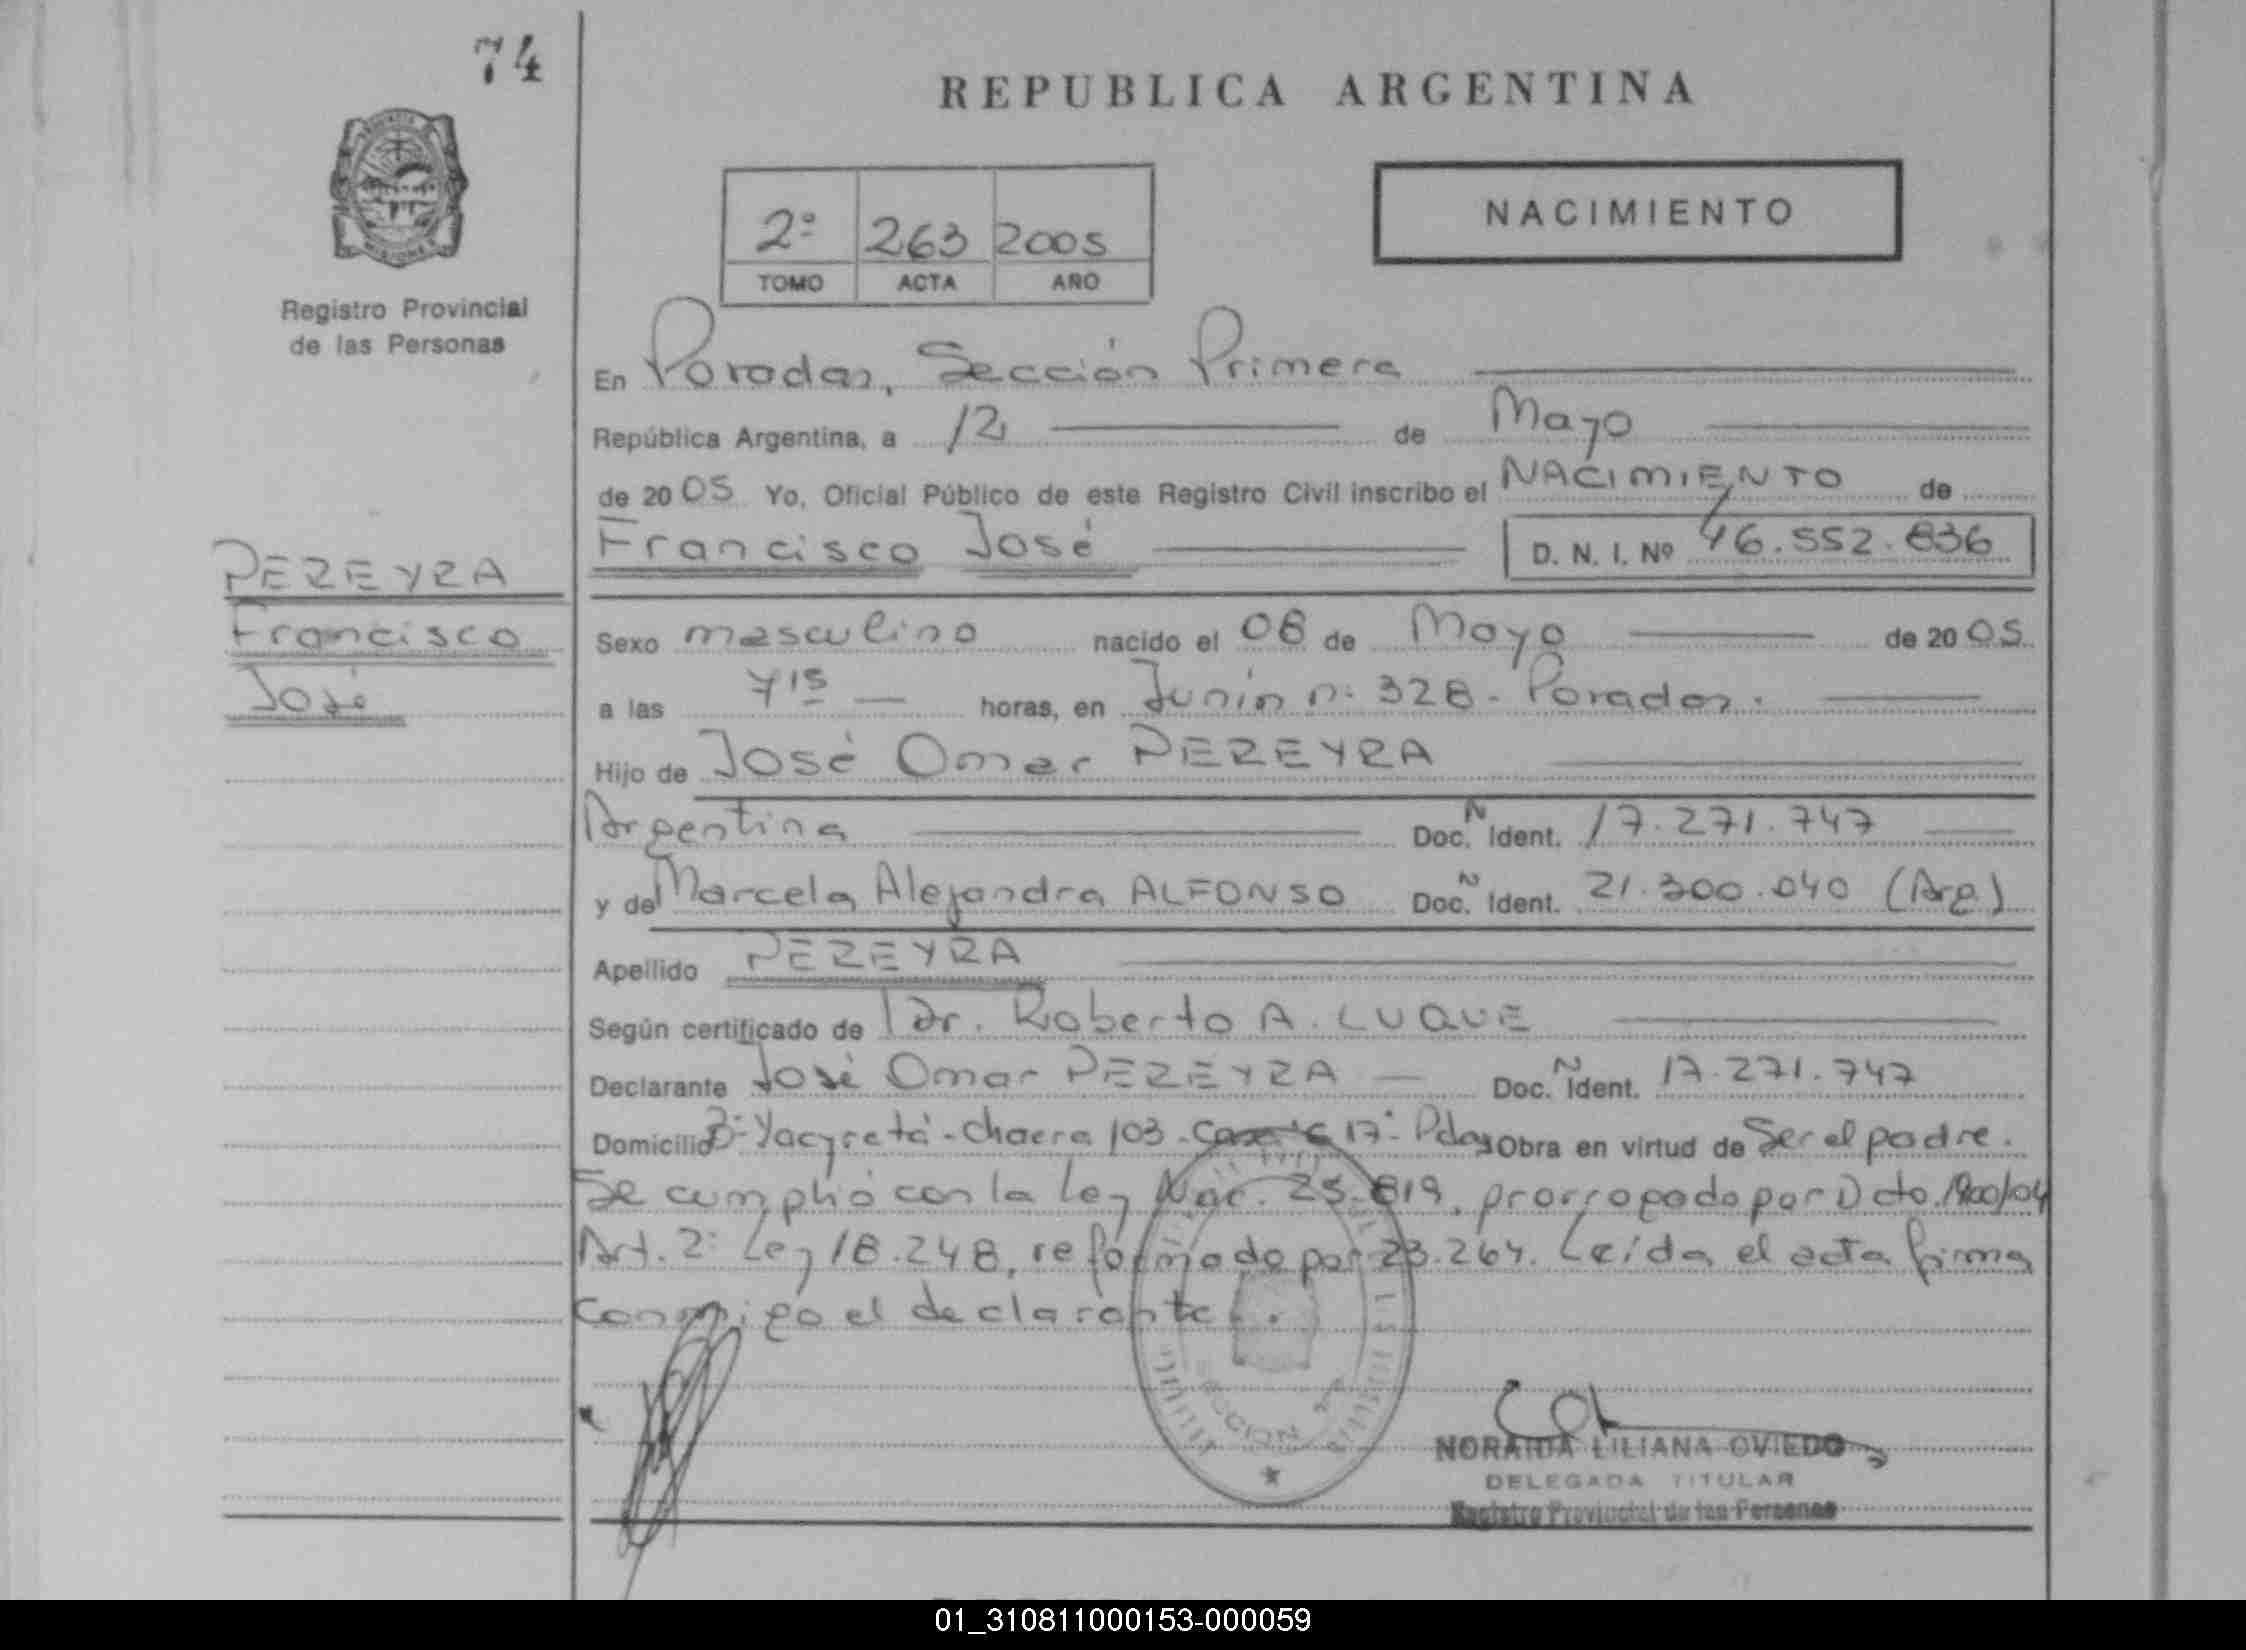 74
REPUBLICA ARGENTINA
NACIMIENTO
2º 263 2005
TOMO ACTA AÑO
Registro Provincial
de las Personas
En Posadas, Sección Primera
República Argentina, a 12 de Mayo
de 2005 Yo, Oficial Público de este Registro Civil inscribo el NACIMIENTO de
Francisco José D. N. I. Nº 46.552.836
PEREYRA
Francisco
José
Sexo masculino nacido el 08 de Mayo de 2005
a las 7 15 horas, en Junín nº 328 - Posadas.
Hijo de José Omar PEREYRA
Argentina Doc. N Ident. 17.271.747
y de Marcela Alejandra ALFONSO Doc. N Ident. 21.300.040 (Arg)
Apellido PEREYRA
Según certificado de Dr. Roberto A. LUQUE
Declarante José Omar PEREYRA Doc. N Ident. 17.271.747
Domicilio Bº Yacyretá - Chacra 103 - Casa 17 - Pdas Obra en virtud de Ser el padre.
Se cumplió con la Ley Nac. 25.819, prorrogado por Dcto. 1900/04
Art. 2º Ley 18.248, reformado por 23.264. Leída el acta firma
conmigo el declarante.
SECCION
NORAIDA LILIANA OVIEDO
DELEGADA TITULAR
Registro Provincial de las Personas
01_310811000153-000059